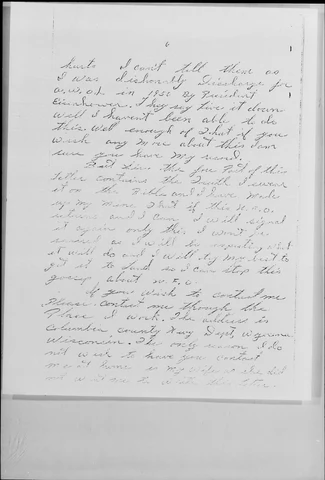 6
hurts I can't tell them as
I was dishonorly Discharge for
A.W.O.L in 1953 By President
Eisenhower. They say live it down
Well I haven't been able to do
this. Well enough of that if you
wish any more about this I am
sure you have my record.
Dear Sir. the fore Part of this
letter contains the Truth I swear
it on the Bible and I have made
up my mind that if this U.F.O.
returns and I can I will signal
it again only this I won't be
scared as I will be expecting what
it will do and I will try my best to
get it to land so I can stop this
gossip about U.F.O.
If you wish to contact me
Please contact me though the
Place I work. The address is
Columbia County Hwy Dept, Wyocena
Wisconsin. The only reason I do
not wish to have you contact
me at home is my Wife as she did
not want me to write this letter.